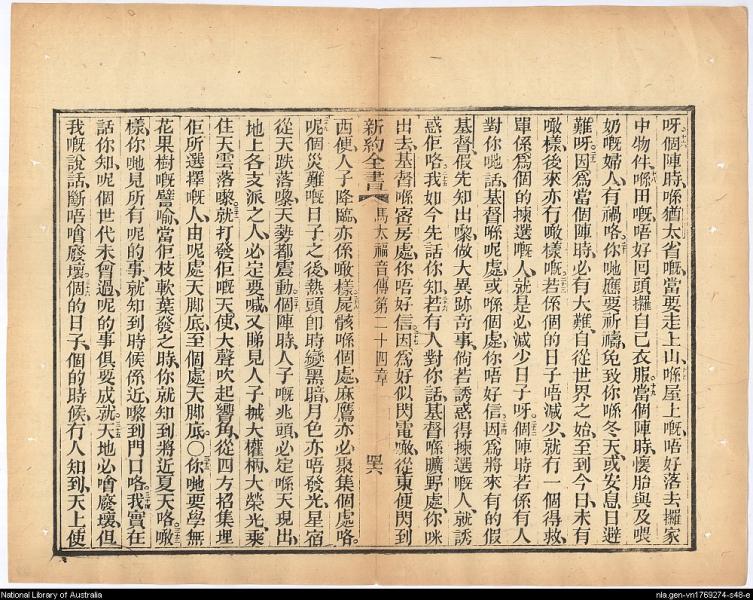 呀個陣時喺猶太省嘅、當要走上山、喺屋上嘅、唔好落去攞家
中物件、喺田嘅、唔好回頭攞自己衣服、當個陣時、懷胎與及喂
奶嘅婦人、有禍咯。你哋應要祈禱、免致你喺冬天、或安息日避
難呀。因爲當個陣時、必有大難、自從世界之始、至到今日、未有
噉樣、後來亦冇噉樣嘅。若係個的日子唔減少、就冇一個得救、
單係爲個的揀選嘅人、就是必減少日子呀。個陣時、若係有人
對你哋話、基督喺呢處、或喺個處、你唔好信、因爲將來有的假
基督、假先知出嚟、做大異跡奇事、倘若誘惑得揀選嘅人、就誘
惑佢咯。我如今先話你知、若有人對你話、基督喺曠野處、你咪
出去、基督喺密房處、你唔好信、因爲好似閃電噉、從東便閃到
新約全書 馬太福音傳第二十四章 四六
西便、人子降臨、亦係噉樣、屍骸喺個處、麻鷹亦必聚集個處咯。
呢個災難嘅日子之後、熱頭卽時變黑暗、月色亦唔發光、星宿
從天跌落嚟、天勢都震動。個陣時、人子嘅兆頭、必定喺天現出、
地上各支派之人、必定要喊、又睇見人子揻大權柄、大榮光、乘
住天雲落嚟、就打發佢嘅天使、大聲吹起響角、從四方招集埋
佢所選擇嘅人、由呢處天脚底、至個處天脚底。〇你哋要學無
花果樹嘅譬喻、當佢枝軟葉發之時、你就知到將近夏天咯。噉
樣、你哋見所有呢的事、就知到時候係近、嚟到門口咯。我實在
話你知、呢個世代未曾過、呢的事俱要成就、天地必噲廢壞、但
我嘅說話、斷唔噲廢壞。個的日子、個的時候、冇人知到、天上使
National Library of Australia
nla.gen-vn1769274-s48-e